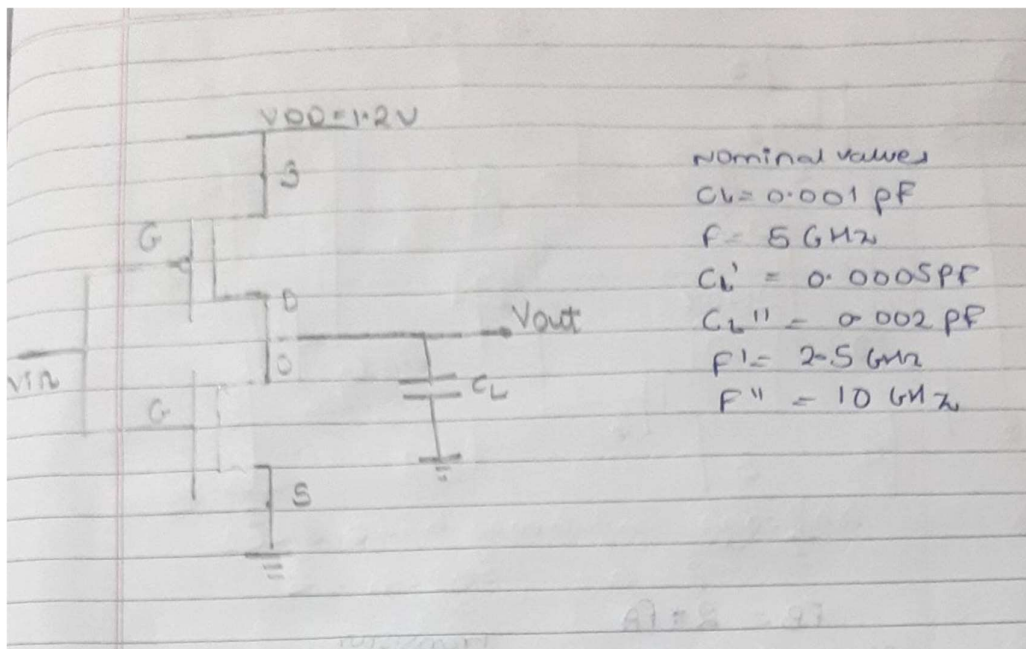 VDD=1.2V
S
G
D
Vout
D
Vin
CL
G
S
Nominal values
CL= 0.001 pF
F= 5 GHz
CL' = 0.0005PF
CL'' = 0.002 PF
F' = 2.5 GHz
F'' = 10 GHz